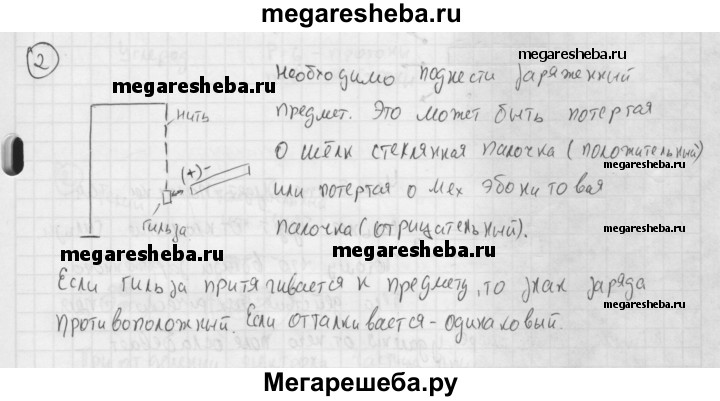 megaresheba.ru
2
megaresheba.ru
megaresheba.ru
Необходимо поднести заряженный
нить
предмет. Это может быть потертая
о шёлк стеклянная палочка (положительный)
megaresheba.ru
(+)-
или потертая о мех эбонитовая
гильза
палочка (отрицательный).
megaresheba.ru
megaresheba.ru
Если гильза притягивается к предмету, то знак заряда
megaresheba.ru
противоположный. Если отталкивается - одинаковый.
megaresheba.ru
Мегарешеба.ру